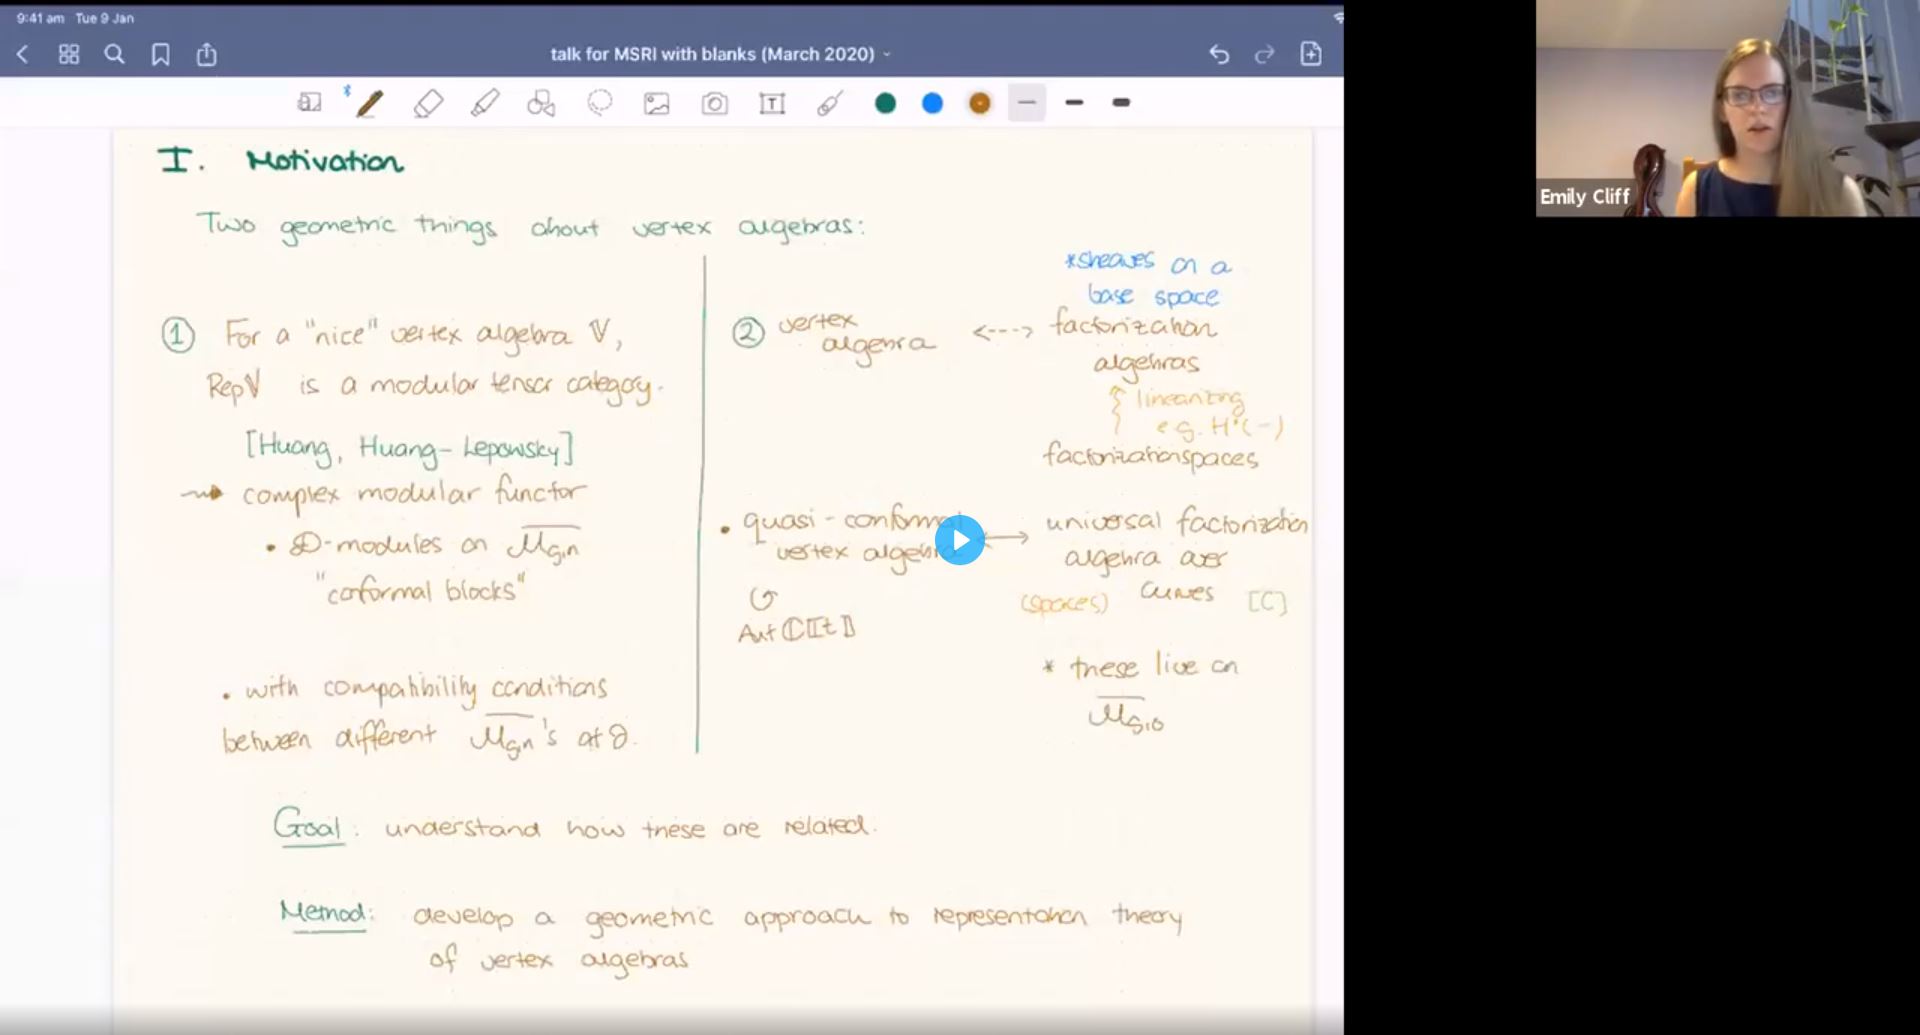 9:41 am Tue 9 Jan
talk for MSRI with blanks (March 2020)
I. Motivation
Two geometric things about vertex algebras:
① For a "nice" vertex algebra V,
Rep V is a modular tensor category.
[Huang, Huang-Lepowsky]
⇝ complex modular functor
• D-modules on \overline{M_{g,n}}
"conformal blocks"
• with compatibility conditions
between different \overline{M_{g,n}}'s at ∂.
*sheaves on a
base space
② vertex algebra <---> factorization
algebras
linearizing
e.g. H•(-)
factorization spaces
• quasi-conformal vertex algebra <-> universal factorization
algebra over
(spaces) curves [C]
↺
Aut ℂ[[t]]
* these live on
\overline{M_{g,0}}
Goal: understand how these are related.
Method: develop a geometric approach to representation theory
of vertex algebras
Emily Cliff